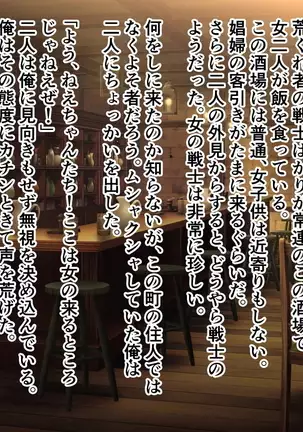 荒くれ者の戦士ばかりが常連のこの酒場で
女二人が飯を食っている。
この酒場には普通、女子供は近寄りもしない。
娼婦の客引きがたまに来るぐらいだ。
さらに二人の外見からすると、どうやら戦士の
ようだった。女の戦士は非常に珍しい。
何をしに来たのか知らないが、この町の住人では
なくよそ者だろう。ムシャクシャしていた俺は
二人にちょっかいを出した。
「よう、ねえちゃんたち!ここは女の来るところ
じゃねえぜ!」
二人は俺に見向きもせず無視を決め込んでいる。
俺はその態度にカチンときて声を荒げた。